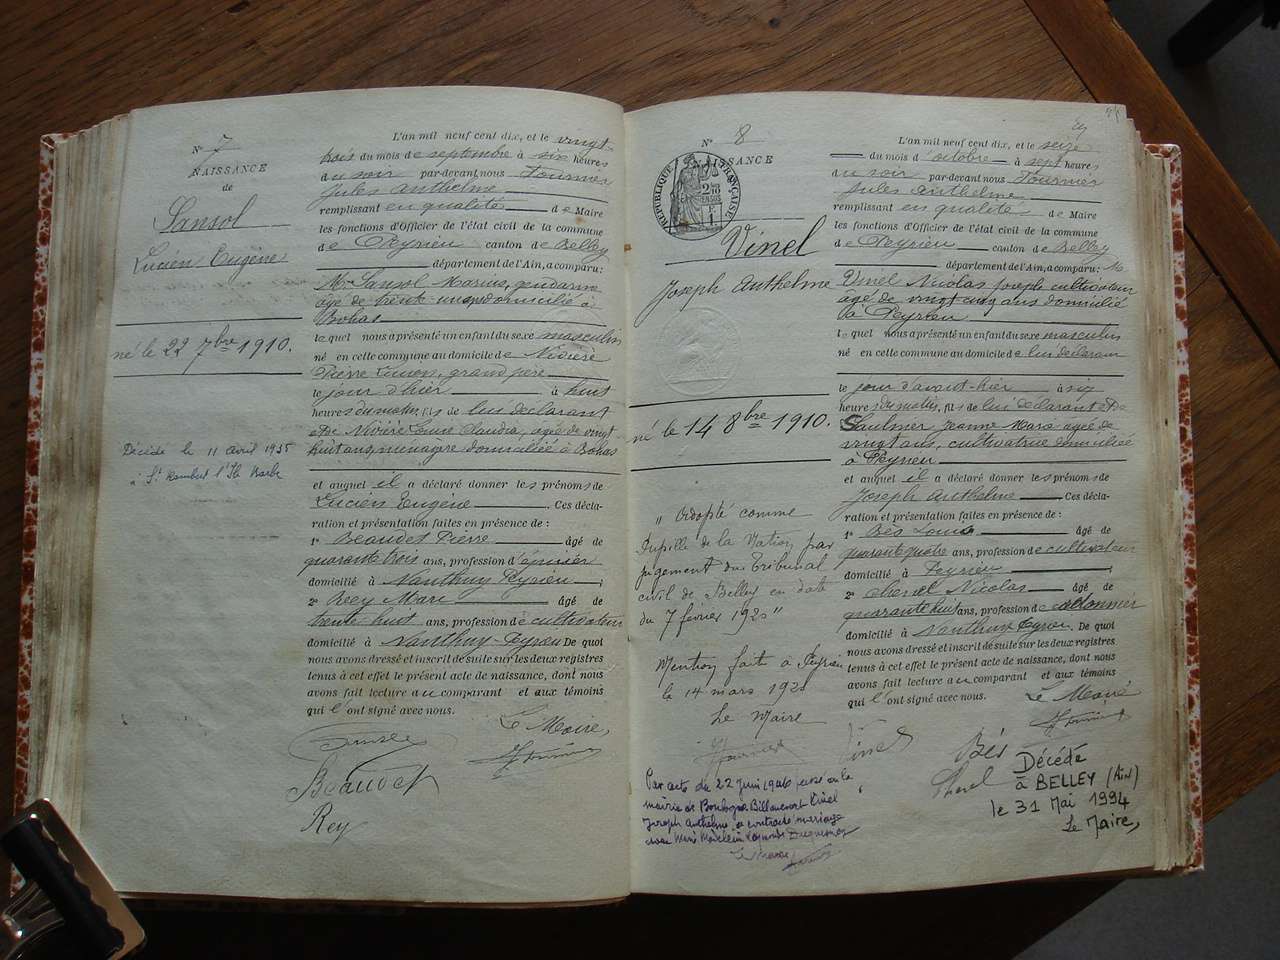 N° 7
NAISSANCE
de
Sansol
Lucien Eugène
né le 22 7bre 1910.
Décédé le 11 avril 1935
à St Rambert l'Ile Barbe
L'an mil neuf cent dix, et le vingt
trois du mois de septembre à six heures
du soir par-devant nous Fournier
Jules Anthelme
remplissant en qualité de Maire
les fonctions d'Officier de l'état civil de la commune
de Peyrieu canton de Belley
département de l'Ain, a comparu:
Mr Sansol Marius, gendarme
âgé de trente un ans domicilié à
Bohas
lequel nous a présenté un enfant du sexe masculin
né en cette commune au domicile de Nivière
Pierre Lucien, grand père
le jour d'hier à huit
heures du matin, fils de lui déclarant
et de Nivière Louise Claudia, âgée de vingt
huit ans, ménagère domiciliée à Bohas
et auquel il a déclaré donner les prénoms de
Lucien Eugène. Ces décla-
ration et présentation faites en présence de :
1° Beaudet Pierre âgé de
quarante trois ans, profession d'épicier
domicilié à Nanthuy Peyrieu ;
2° Rey Marc âgé de
trente huit ans, profession de cultivateur
domicilié à Nanthuy-Peyrieu De quoi
nous avons dressé et inscrit de suite sur les deux registres
tenus à cet effet le présent acte de naissance, dont nous
avons fait lecture au comparant et aux témoins
qui l'ont signé avec nous.
Le Maire,
Fournier
Beaudet
Rey
N° 8
NAISSANCE
RÉPUBLIQUE FRANÇAISE
2/10 EN SUS
Vinel
Joseph Anthelme
né le 14 8bre 1910.
" Adopté comme
Pupille de la Nation par
jugement du Tribunal
civil de Belley en date
du 7 février 1920 "
Mention faite à Peyrieu
le 14 mars 192
Le Maire
Fournier
Par acte du 22 juin 1946 passé en la
mairie de Boulogne Billancourt Vinel
Joseph Anthelme a contracté mariage
avec
Le Maire
L'an mil neuf cent dix, et le seize
du mois d'octobre à sept heures
du soir par-devant nous Fournier
Jules Anthelme
remplissant en qualité de Maire
les fonctions d'Officier de l'état civil de la commune
de Peyrieu canton de Belley
département de l'Ain, a comparu: M
Vinel Nicolas Joseph cultivateur
âgé de vingt cinq ans domicilié
à Peyrieu
lequel nous a présenté un enfant du sexe masculin
né en cette commune au domicile de lui déclarant
le jour d'avant-hier à six
heures du matin, fils de lui déclarant et de
Saulnier Jeanne Marie âgée de
vingt ans, cultivatrice domiciliée
à Peyrieu
et auquel il a déclaré donner les prénoms de
Joseph Anthelme Ces décla-
ration et présentation faites en présence de :
1° Bès Louis âgé de
quarante quatre ans, profession de cultivateur
domicilié à Peyrieu ;
2° Nicolas âgé de
quarante huit ans, profession de
domicilié à Nanthuy Peyrieu. De quoi
nous avons dressé et inscrit de suite sur les deux registres
tenus à cet effet le présent acte de naissance, dont nous
avons fait lecture au comparant et aux témoins
qui l'ont signé avec nous.
Le Maire
Fournier
Vinel
Bès
Décédé
à BELLEY (Ain)
le 31 Mai 1994
Le Maire,